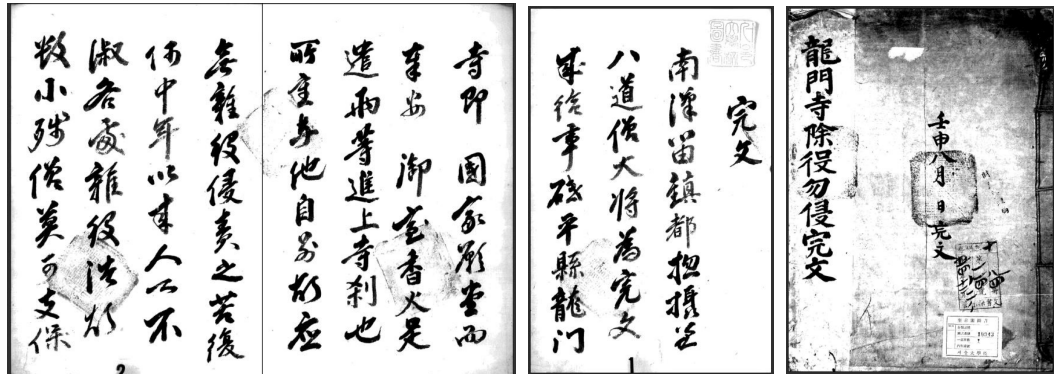 龍門寺除役勿侵完文
壬申八月 日 完文
서울大學校
完文
南漢留鎮都摠攝兼
八道僧大將為完文
成給事砥平縣龍门
寺即 國家願堂而
奉安 御室香火是
遣兩等進上寺刹也
所重與他自別故應
無雜役侵責之苦後
何中年以來人心不
淑各處雜役浩煩
數小殘僧莫可支保
1
2